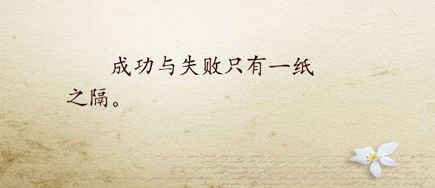 成功与失败只有一纸
之隔。